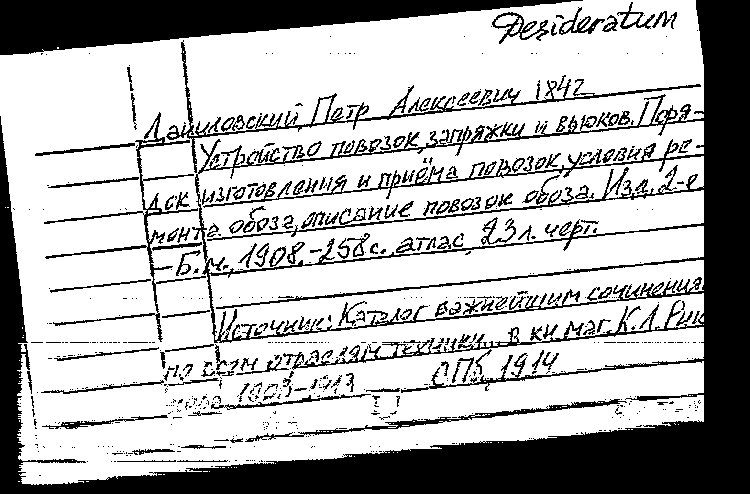 Desideratum
Даниловский, Петр Алексеевич 1842
Устройство повозок, запряжки и вьюков. Поря-
док изготовления и приёма повозок, условия ре-
монта обоза, описание повозок обоза. Изд. 2-е
— Б.м., 1908. – 258 с. атлас, 23 л. черт.
Источник: Каталог важнейшим сочинениям
по всем отраслям техники... в кн. маг. К.Л. Рик-
кера 1903–1913 СПб, 1914